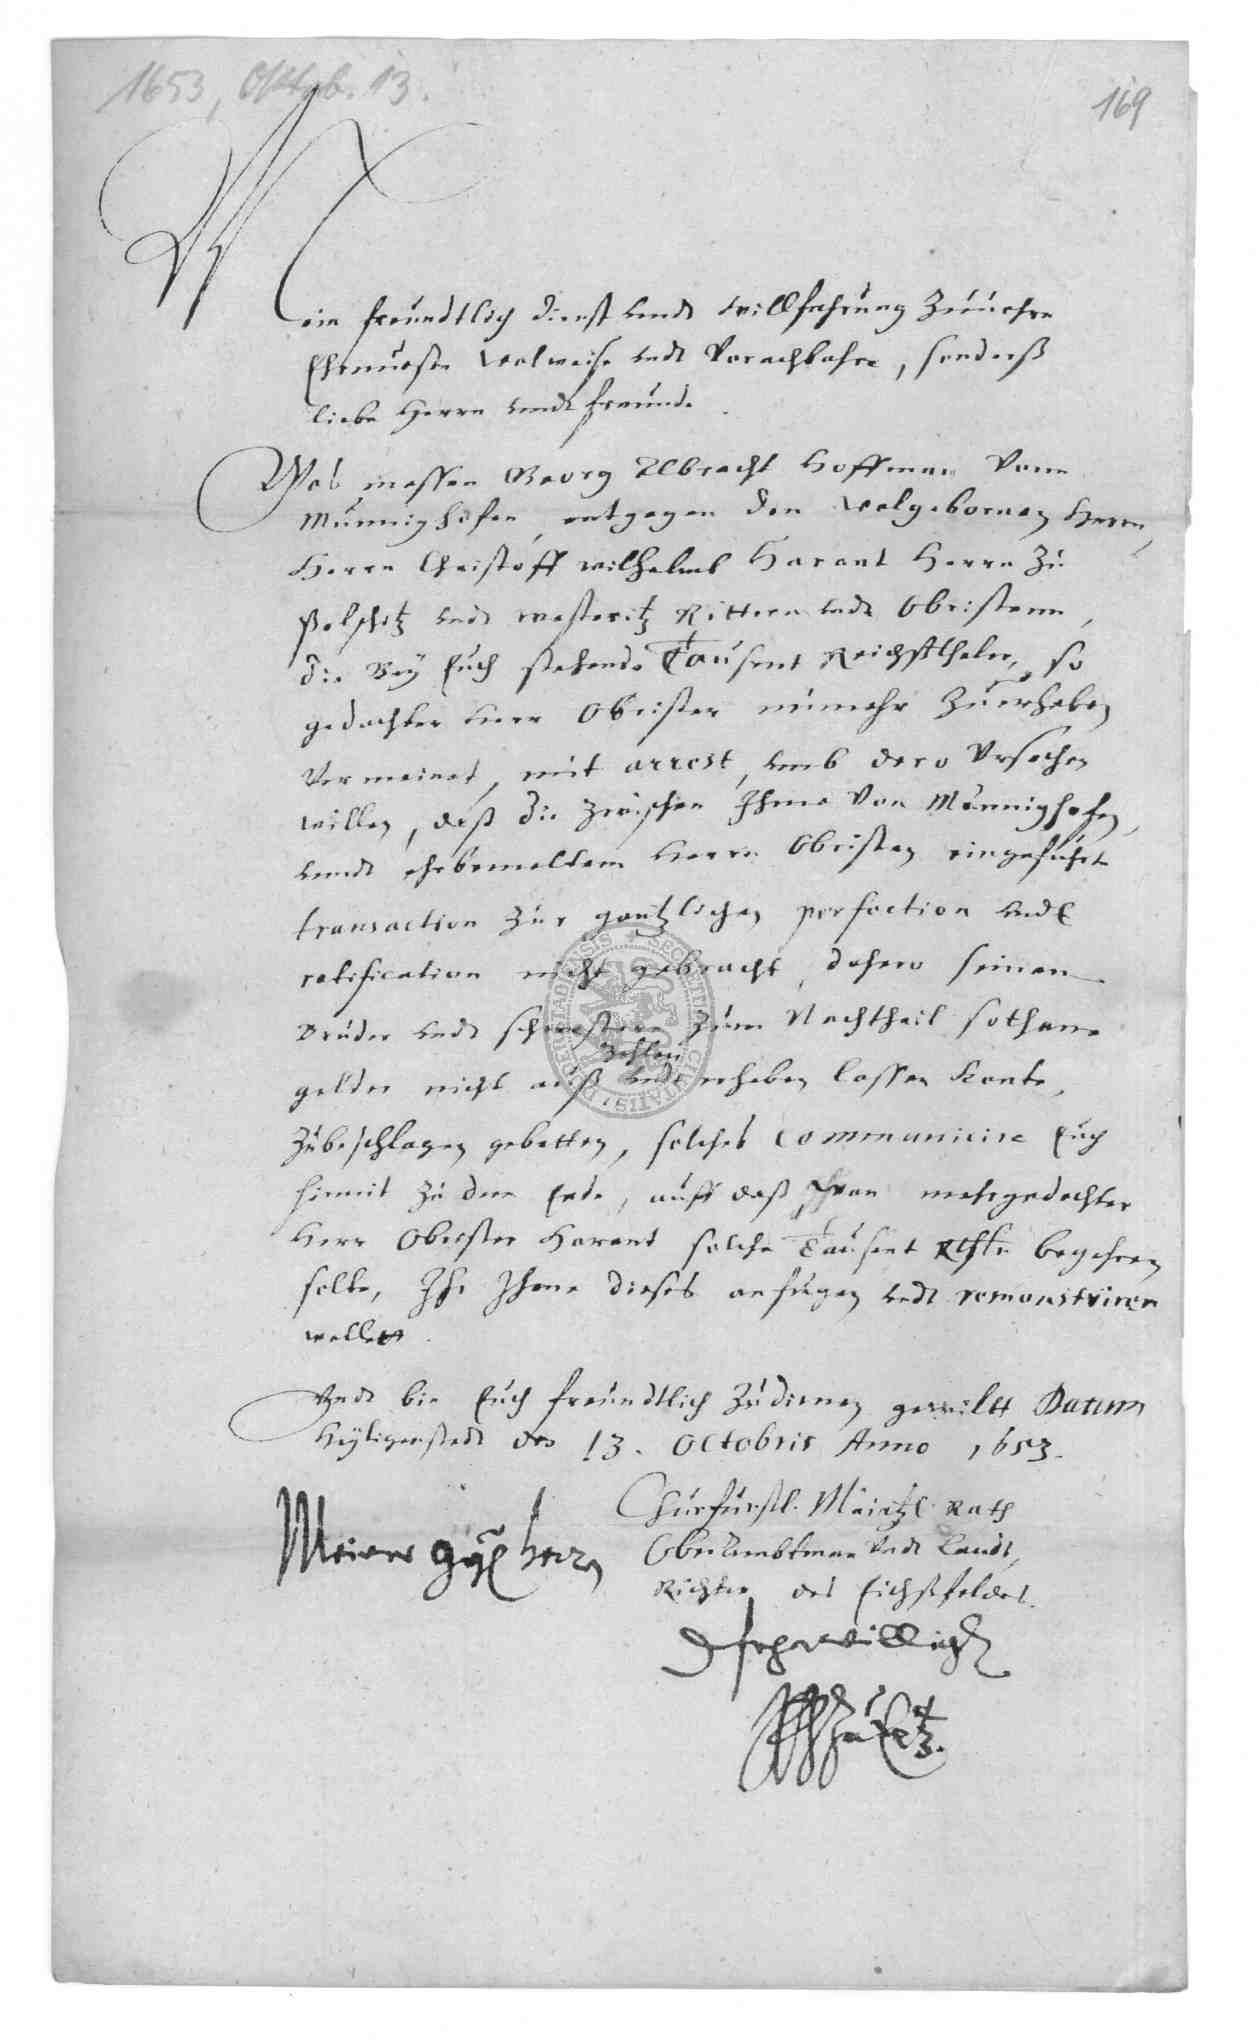 1653, Oktob. 13.
169
Mein freundtlich dienst undt willfahrung Zuuohrn
Ehrnueste Wolweise undt Vorachtbahre, sonderß
liebe Herrn undt freunde
Was massen Georg Albrecht Hoffman Vonn
Munnighofen, entgegen den Wolgebornen Herrn,
Herrn Christoff Wilhelmb Harant Herrn Zu
Polschitz undt Westeritz Rittern undt Obristenn,
die Bey Euch stehende Tausent Reichsthaler, so
gedachter Herr Obrister numehr Zuerheben
Vermeinet, mit arrest, umb dero Vrsachen
willen, daß die Zwischen Ihme Von Munnighofen,
undt ehrbemeltem Herrn Obristen eingefuhrt
transaction Zur gantzlichen perfection undt
ratification nicht gebracht, dahero seinem
Bruder undt schwestern Zum Nachtheil sothane
Zehlen
gelder nicht auß undt erheben lassen konte,
Zubeschlagen gebetten, solches communicire Euch
hiemit Zu dem Ende, auff daß, wan mehrgedachter
Herr Obrister Harant solche Tausent Rthlr begehren
solte, Ihr Ihme dieses anfugen undt remonstriren
wollet.
Undt bin Euch freundtlich Zudienen gewilt Datum
Heyligenstadt den 13. Octobris Anno 1653.
Churfurstl. Maintzl. Rath
Oberambtman Undt Landt,
Richter des Eichßfeldes.
Meiner
dienstwilliger